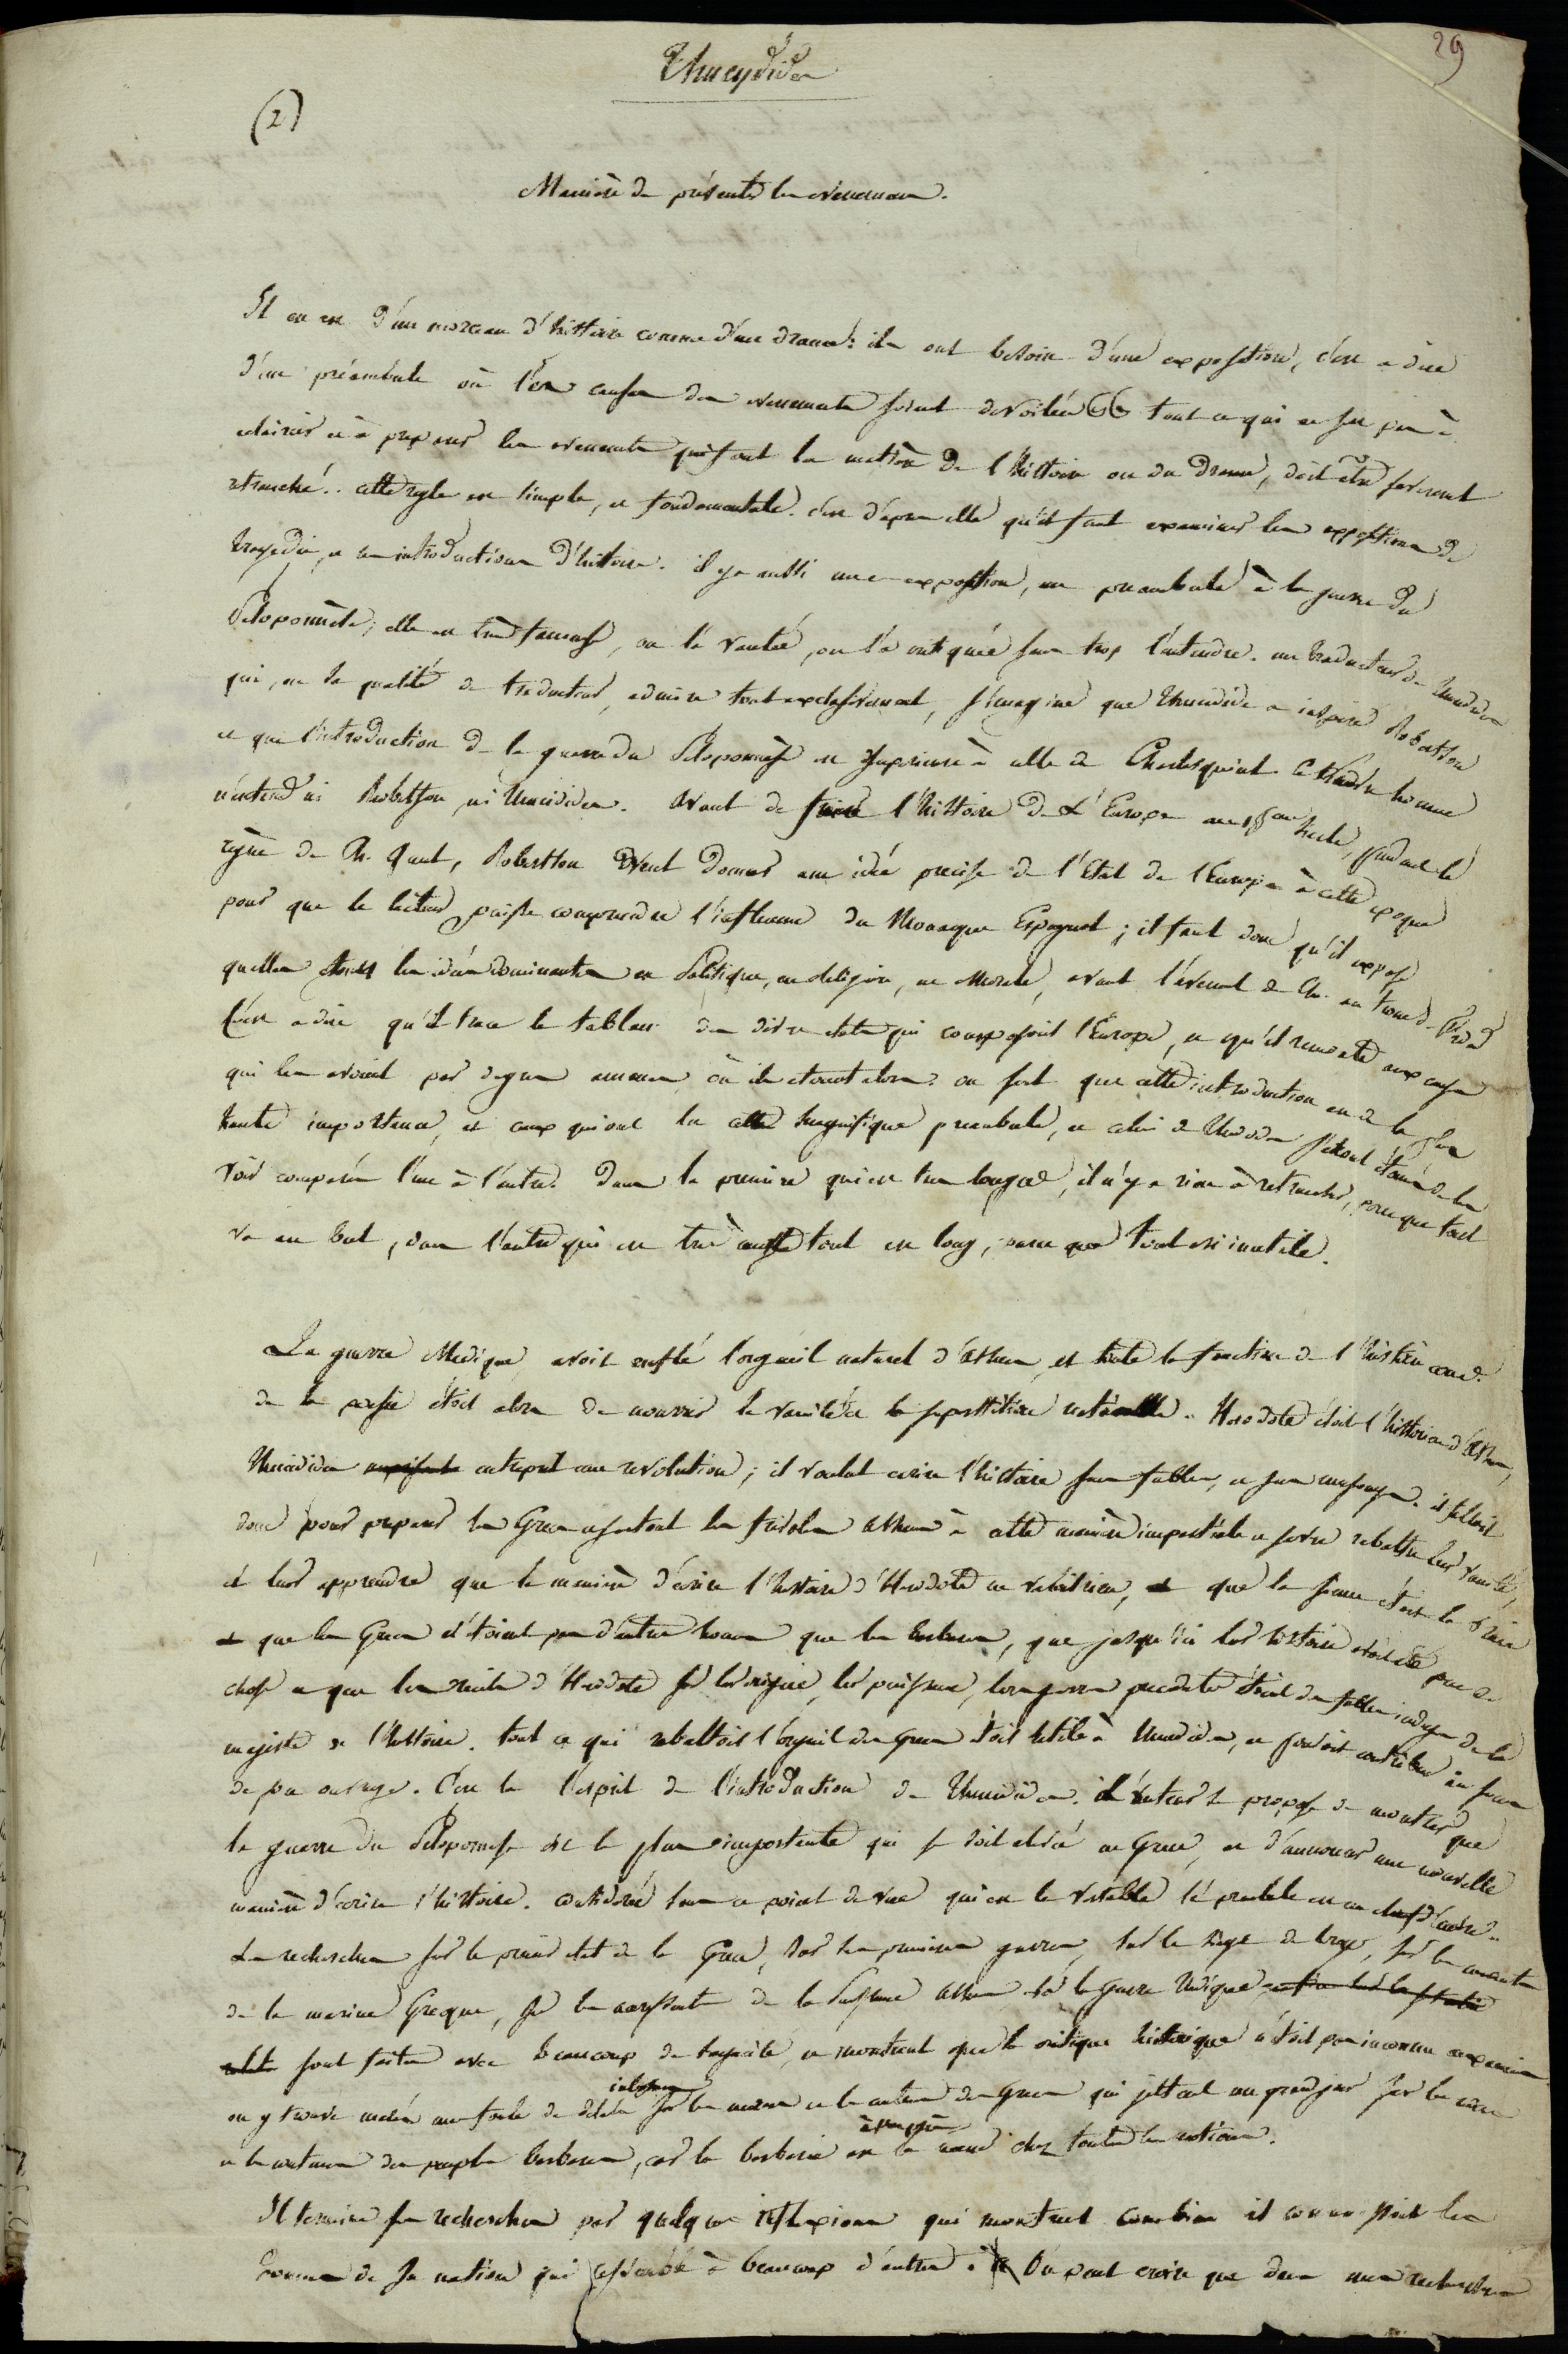 29
Thucydides
(2)
Manière de présenter les evenemens.
Il en est d'un morceau d'histoire comme d'un drame: ils ont besoin d'une exposition, c'est a dire
d'un préambule où les causes des evenements soient devoilées tout ce qui ne sert pas à
eclaircir et à preparer les evenements qui font la matière de l'histoire ou du drame, doit etre severement
retranché.. cette regle est simple, et fondamentale. c'est d'après elle qu'il faut examiner les expositions de
tragedie, et les introductions d'histoire. il y a aussi une exposition, un preambule à la guerre du
Péloponnèse; elle est très fameuse, on l'a vantée, on l'a critiquée sans trop l'entendre. un traducteur de Thucidides
qui, en sa qualité de traducteur, admire tout exclusivement, s'imagine que Thucidide a inspiré Robertson
et que l'introduction de la guerre du Péloponnèse est superieure à celle de Charlesquint. Ce homme
n'entend ni Robertson, ni Thucidides. Avant de l'histoire de l'Europe au siecle, pendant le
règne de Ch. Quint, Robertson veut donner une idée precise de l'Etat de l'Europe à cette epoque
pour que le lecteur puisse comprendre l'influence du Monarque Espagnol; il faut donc qu'il expose
quelles étoient les idées dominantes en Politique, en Religion, en Morale, avant l'avenement de Ch. au trone
C'est a dire qu'il trace le tableau des divers etats qui composoient l'Europe, et qu'il remonte aux causes
qui les avoient par degrés amenés où ils etoient alors. on sent que cette introduction est de la plus
haute importance, et ceux qui ont lu cette magnifique preambule, et celui de Thucidides seront étonnés de les
voir comparés l'un à l'autre. Dans le premiere qui est tres longue, il n'y a rien à retrancher, parce que tout
va au but, dans l'autre qui est très tout est long, parce que tout est inutile.
La guerre Medique, avoit enflé l'orgueil naturel d'Athènes, et toute la fonction de l'histoire comme
de la poesie étoit alors de nourrir la vanité et la superstition nationale. Herodote étoit l'historien d'Athenes,
Thucidides entreprit une revolution; il voulut ecrire l'histoire sans fables, et sans mensonges. il falloit
donc pour preparer les Grecs et surtout les frivoles Atheniens à cette manière impartiale et severe rabattre leur vanité,
et leur apprendre que la manière d'écrire l'histoire d'Herodote ne valoit rien, que la sienne étoit la vraie
que les Grecs n'étoient pas d'autres hommes que les barbares, que jusqu'ici leur histoire étoit peu de
chose et que les recits d'Herodote sur leur origine, leur puissance, leurs guerres precedentes étoient des fables indignes de la
majesté de l'histoire. tout ce qui rabattoit l'orgueil des Grecs étoit utile à Thucidides, et pouvoit contribuer au succès
de son ouvrage. C'est là l'esprit de l'introduction de Thucidides. l'auteur se propose de montrer que
la guerre du Péloponnese est la plus importante qui se soit elevée en Grece, et d'annoncer une nouvelle
manière d'écrire l'histoire. considéré sous ce point de vue qui est le véritable le préambule est un chef d'œuvre.
Les recherches sur le premier etat de la Grece, sur les premieres guerres, sur le siege de troye, sur les
de la marine Grecque, sur les accroissements de la puissance Athen. sur la guerre Medique
sont faites avec beaucoup de sagacité, et montrent que la critique historique n'étoit pas inconnue aux anciens
on y trouve mêlés une foule de détails sur les mœurs et les coutumes des Grecs qui jettent un grand jour sur les mœurs
et les coutumes des peuples barbares, car la barbarie est la meme chez toutes les nations.
Il termine ses recherches par quelques réflexions qui montrent combien il connoissoit les
hommes de sa nation qui ressemble à beaucoup d'autres. On peut croire que dans mes recherches